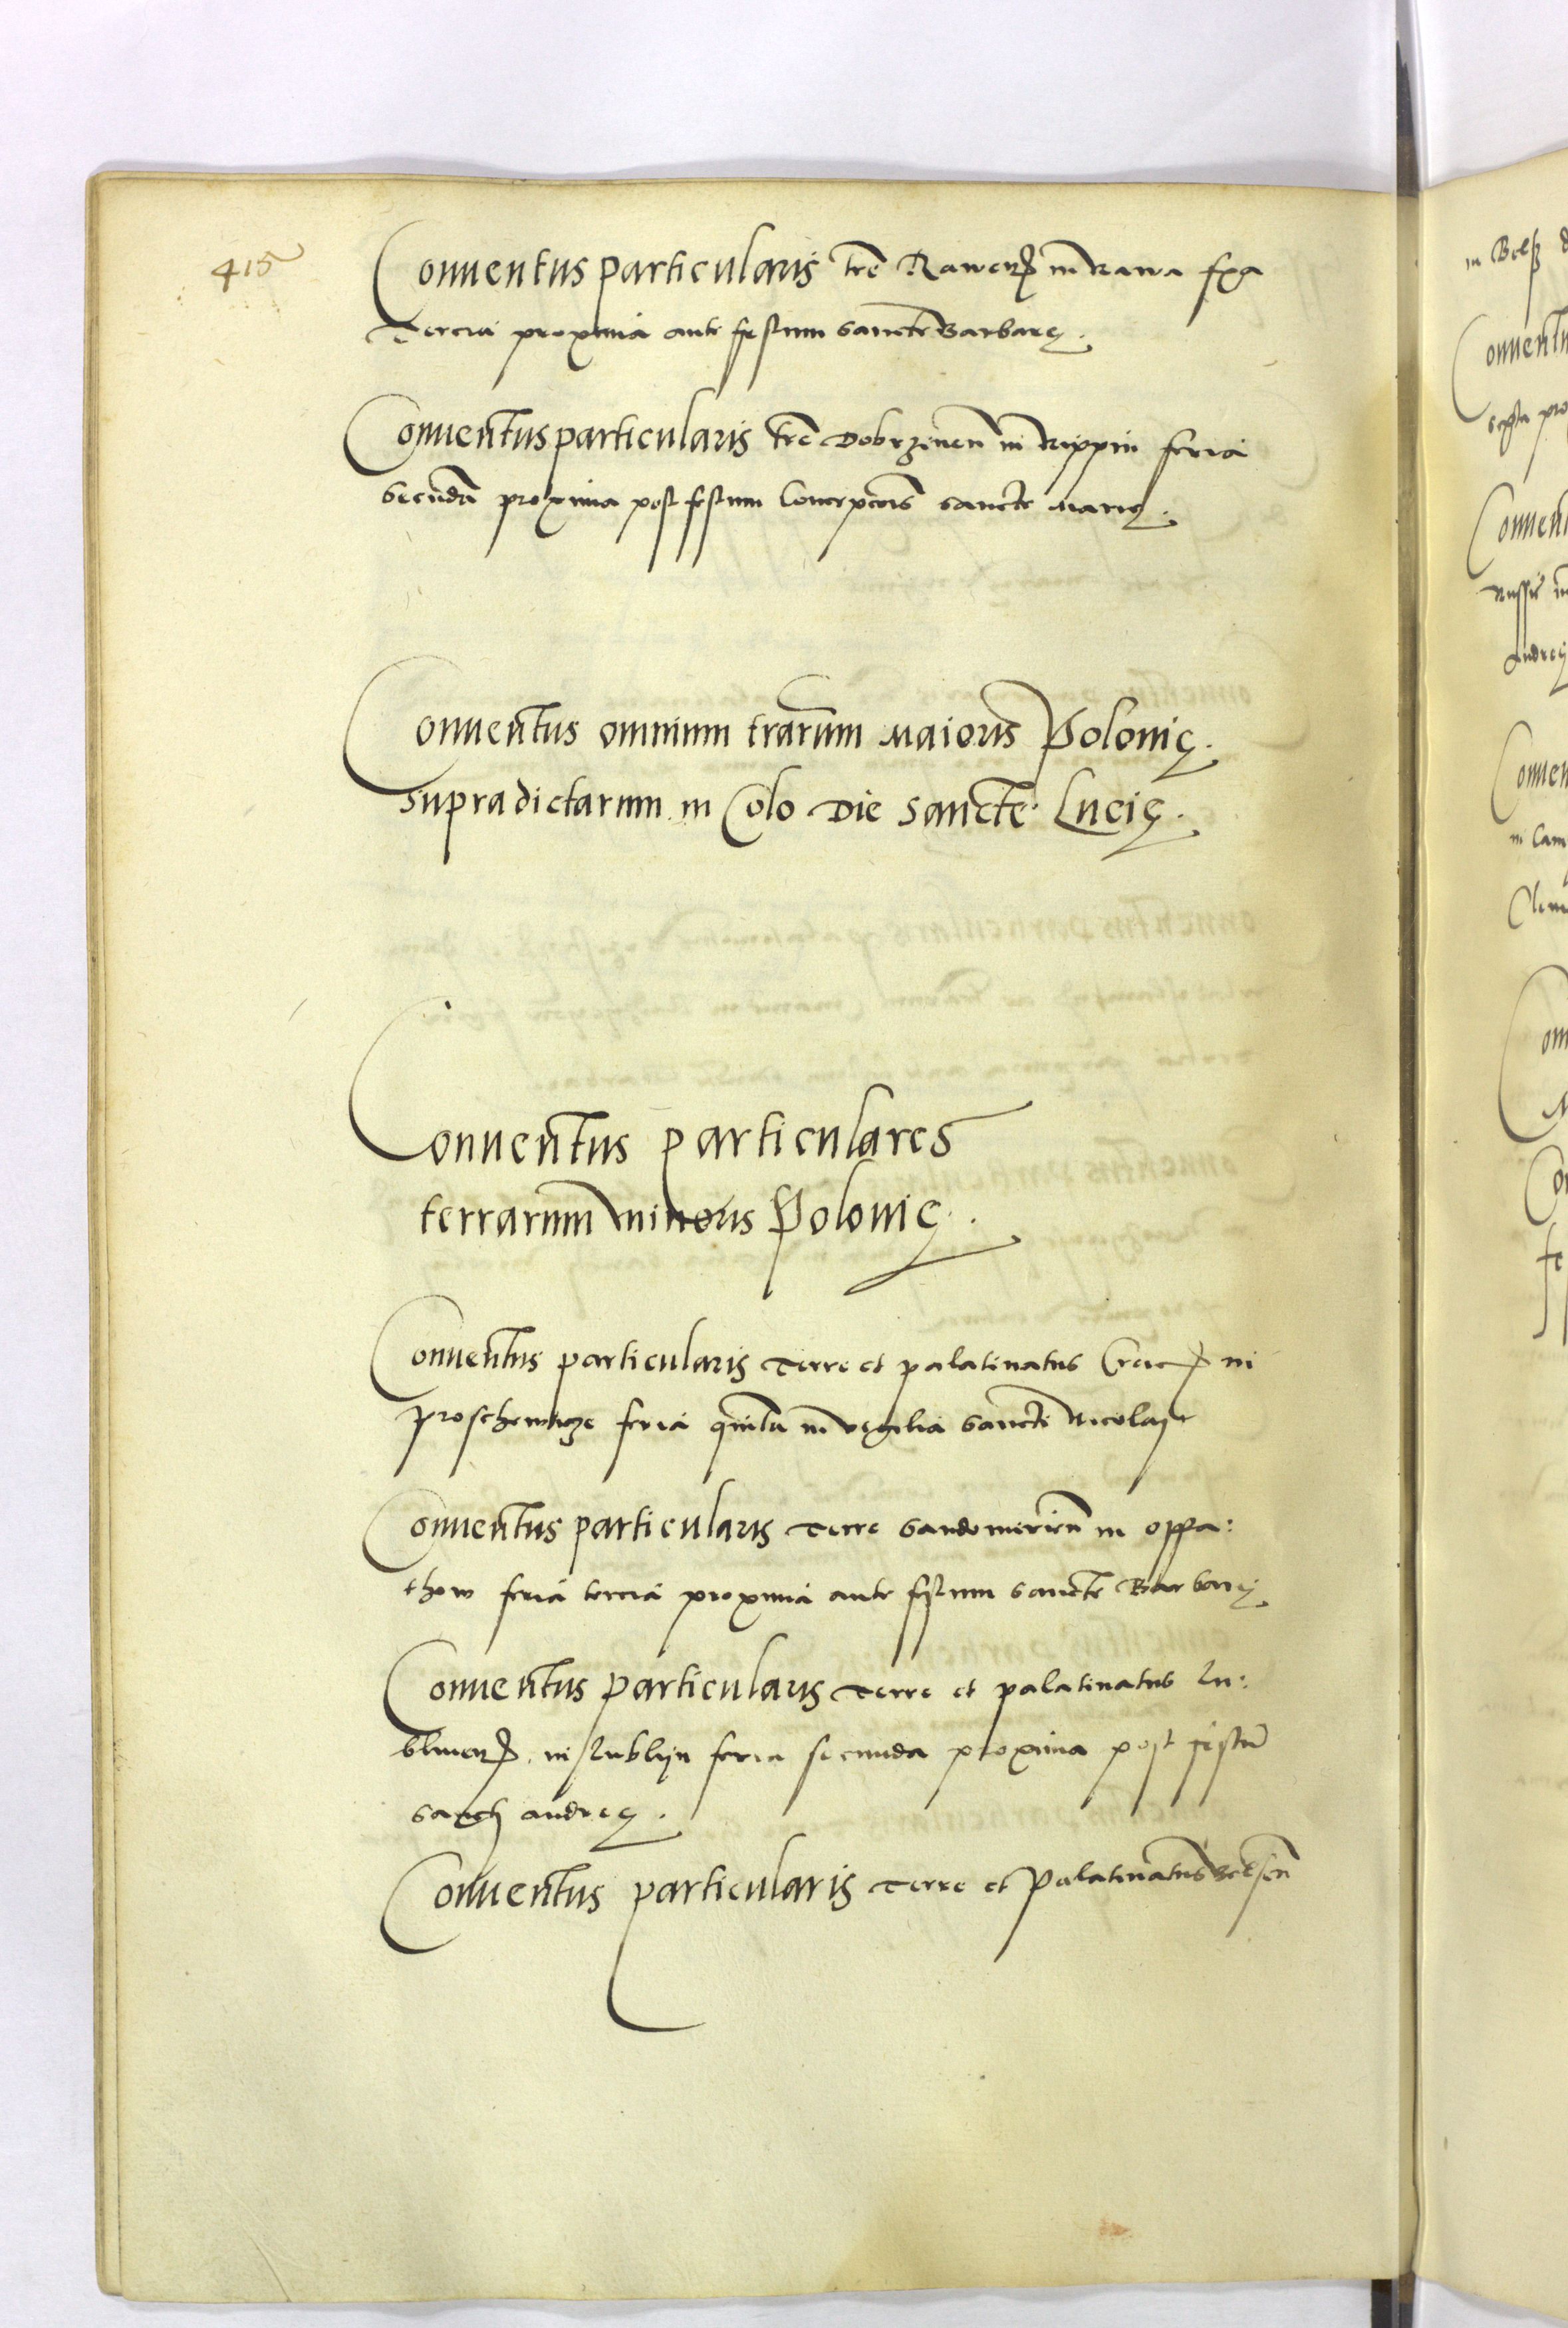 415
Conuentus particularis tre Rawen in Rawa fra
Tercia proxima ante festum sancte Barbarę.
Conuentus particularis tre Dobrzinen in Rippin feria
secunda proxima post festum Concepcois sancte Marię.
Conuentus omnium trarum Maioris Polonię.
supradictarum in Colo Die sancte Lucię.
Conuentus particulares
terrarum minoris Polonię.
Conuentus particularis Terre et palatinatus Crac in
proschowicze feria quinta in vigilia sancti Nicolaj
Conuentus particularis Terre Sandomirien in oppa:
thow feria tercia proxima ante festum sancte Barbarę
Conuentus particularis Terre et palatinatus Lu:
blinen in Lublijn feria secunda proxima post festu
sancti andreę.
Conuentus particularis Terre et Palatinatus Belsen
in Belß
Conuentu
sexta pro
Conuent
Russie in
Andreę
Conuen
in Cam
Clem